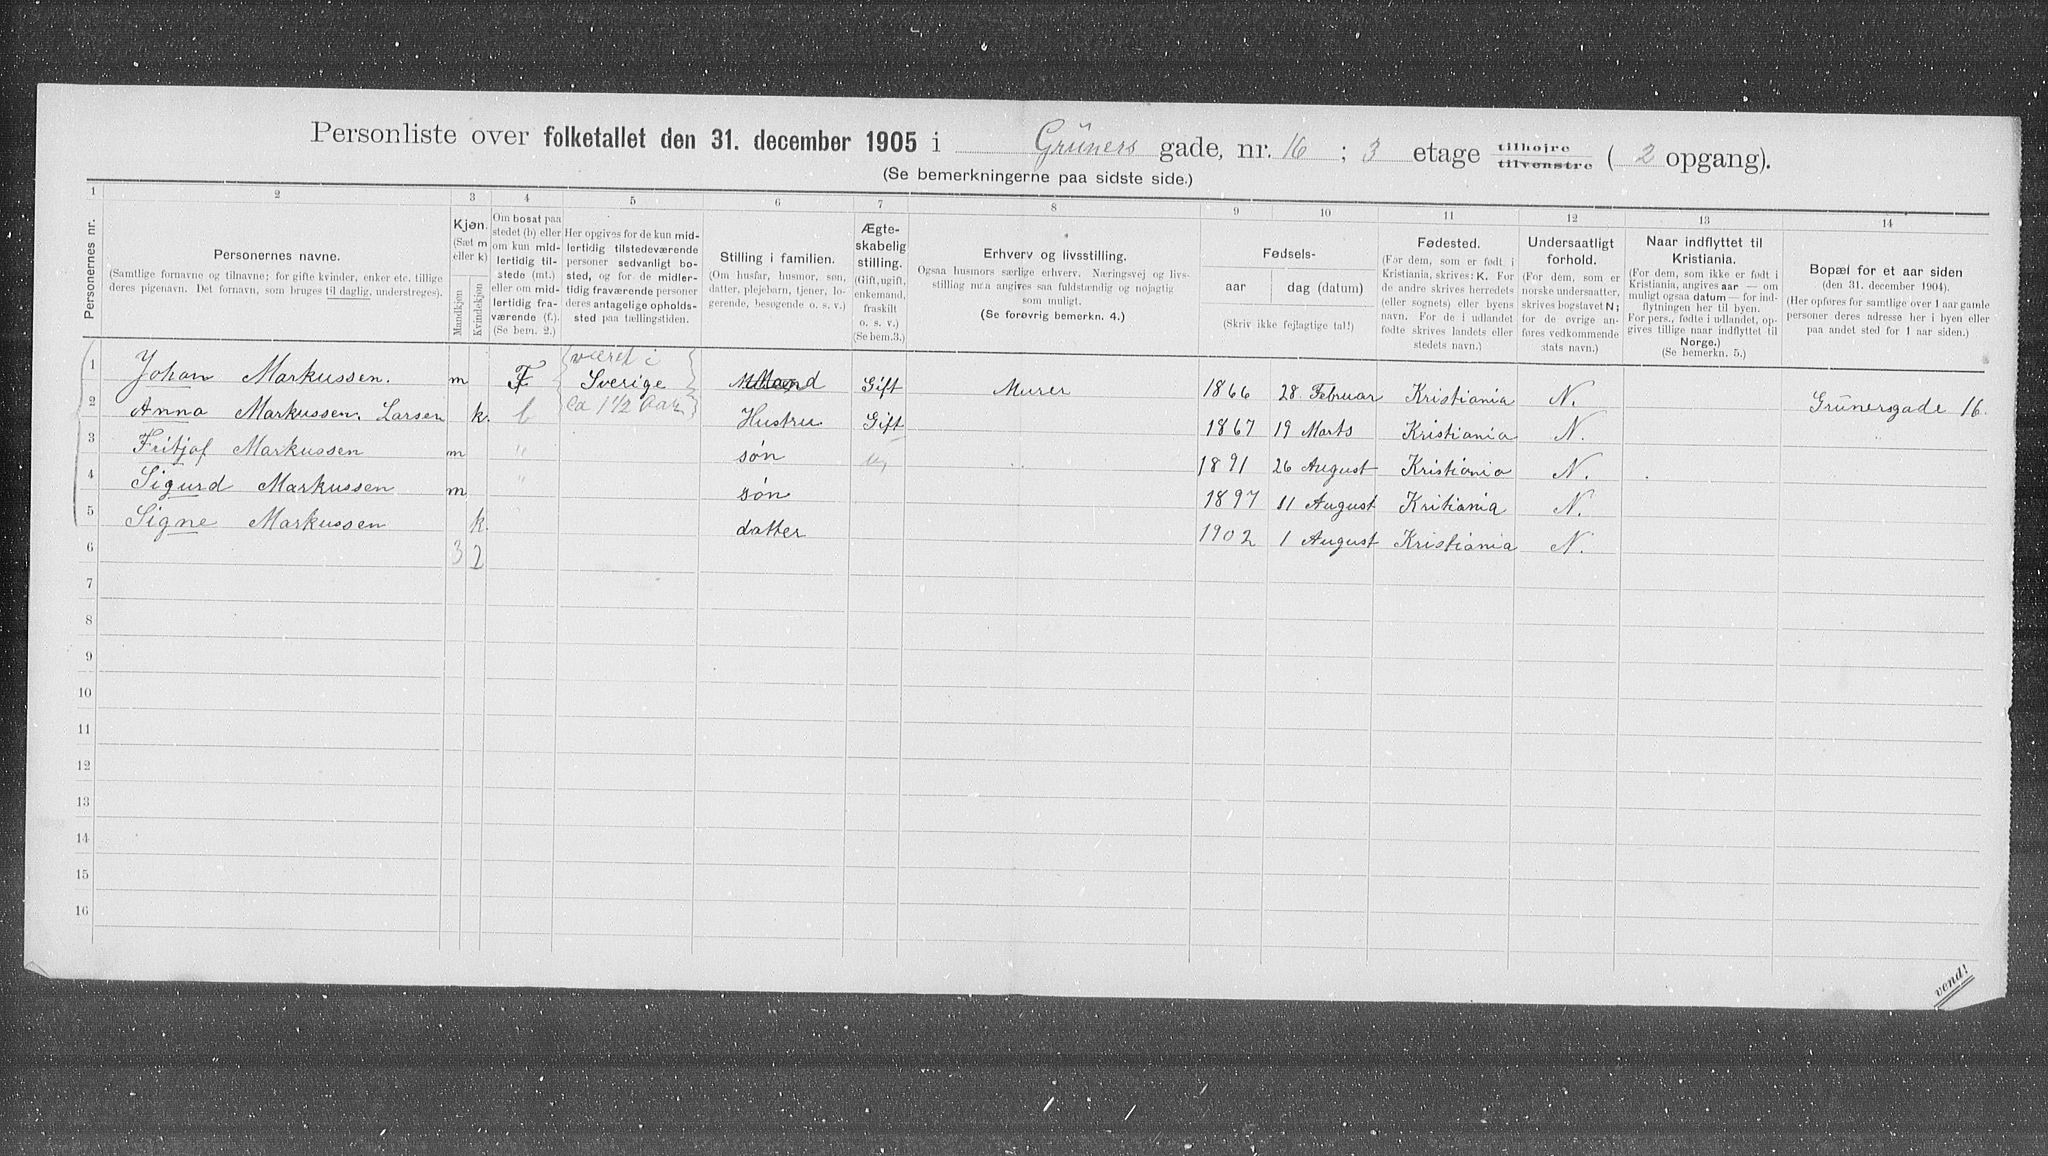 Personliste over folketallet den 31. december 1905 i Grüners gade, nr. 16 ; 3 etage tilhøjre tilvenstre ( 2 opgang).
(Se bemerkningerne paa sidste side.)
1 2 3 4 5 6 7 8 9 10 11 12 13 14
Personernes nr.
Personernes navne.
(Samtlige fornavne og tilnavne; for gifte kvinder, enker etc. tillige
deres pigenavn. Det fornavn, som bruges til daglig, understreges).
Kjøn.
(Sæt m
eller k)
Mandkjøn
Kvindekjøn
Om bosat paa
stedet (b) eller
om kun mid-
lertidig til-
stede (mt.)
eller om mid-
lertidig fra-
værende (f.).
(Se bem. 2.)
Her opgives for de kun mid-
lertidig tilstedeværende
personer sedvanligt bo-
sted, og for de midler-
tidig fraværende personer
deres antagelige opholds-
sted paa tællingstiden.
Stilling i familien.
(Om husfar, husmor, søn,
datter, plejebarn, tjener, lo-
gerende, besøgende o. s. v.)
Ægte-
skabelig
stilling.
(Gift, ugift,
enkemand,
fraskilt
o. s. v.)
(Se bem.3.)
Erhverv og livsstilling.
Ogsaa husmors særlige erhverv. Næringsvej og livs-
stilling maa angives saa fuldstændig og nøjagtig
som muligt.
(Se forøvrig bemerkn. 4.)
Fødsels-
aar dag (datum)
(Skriv ikke fejlagtige tal!)
Fødested.
(For dem, som er født i
Kristiania, skrives: K. For
de andre skrives herredets
(eller sognets) eller byens
navn. For de i udlandet
fødte skrives landets eller
stedets navn.)
Undersaatligt
forhold.
(For dem, som er
norske undersaatter,
skrives bogstavet N;
for de øvrige an-
føres vedkommende
stats navn.)
Naar indflyttet til
Kristiania.
(For dem, som ikke er født i
Kristiania, angives aar — om
muligt ogsaa datum — for ind-
flytningen her til byen.
For pers., fødte i udlandet, op-
gives tillige naar indflyttet til
Norge.)
(Se bemerkn. 5.)
Bopæl for et aar siden
(den 31. december 1904).
(Her opføres for samtlige over 1 aar gamle
personer deres adresse her i byen eller
paa andet sted for 1 aar siden.)
været i
1 Johan Markussen. m F Sverige Mand Gift Murer 1866 28. Februar Kristiania N. Grünersgade 16.
ca 1 1/2 Aar
2 Anna Markussen. Larsen k. b Hustru. Gift 1867 19 Marts Kristiania N. "
3 Fritjof Markussen m " søn ug 1891 26 August Kristiania N.
4 Sigurd Markussen m " søn 1897 11 August Kritiania N.
5 Signe Markussen k. datter 1902 1 August Kristiania N.
6 3 2
7
8
9
10
11
12
13
14
15
16
vend!